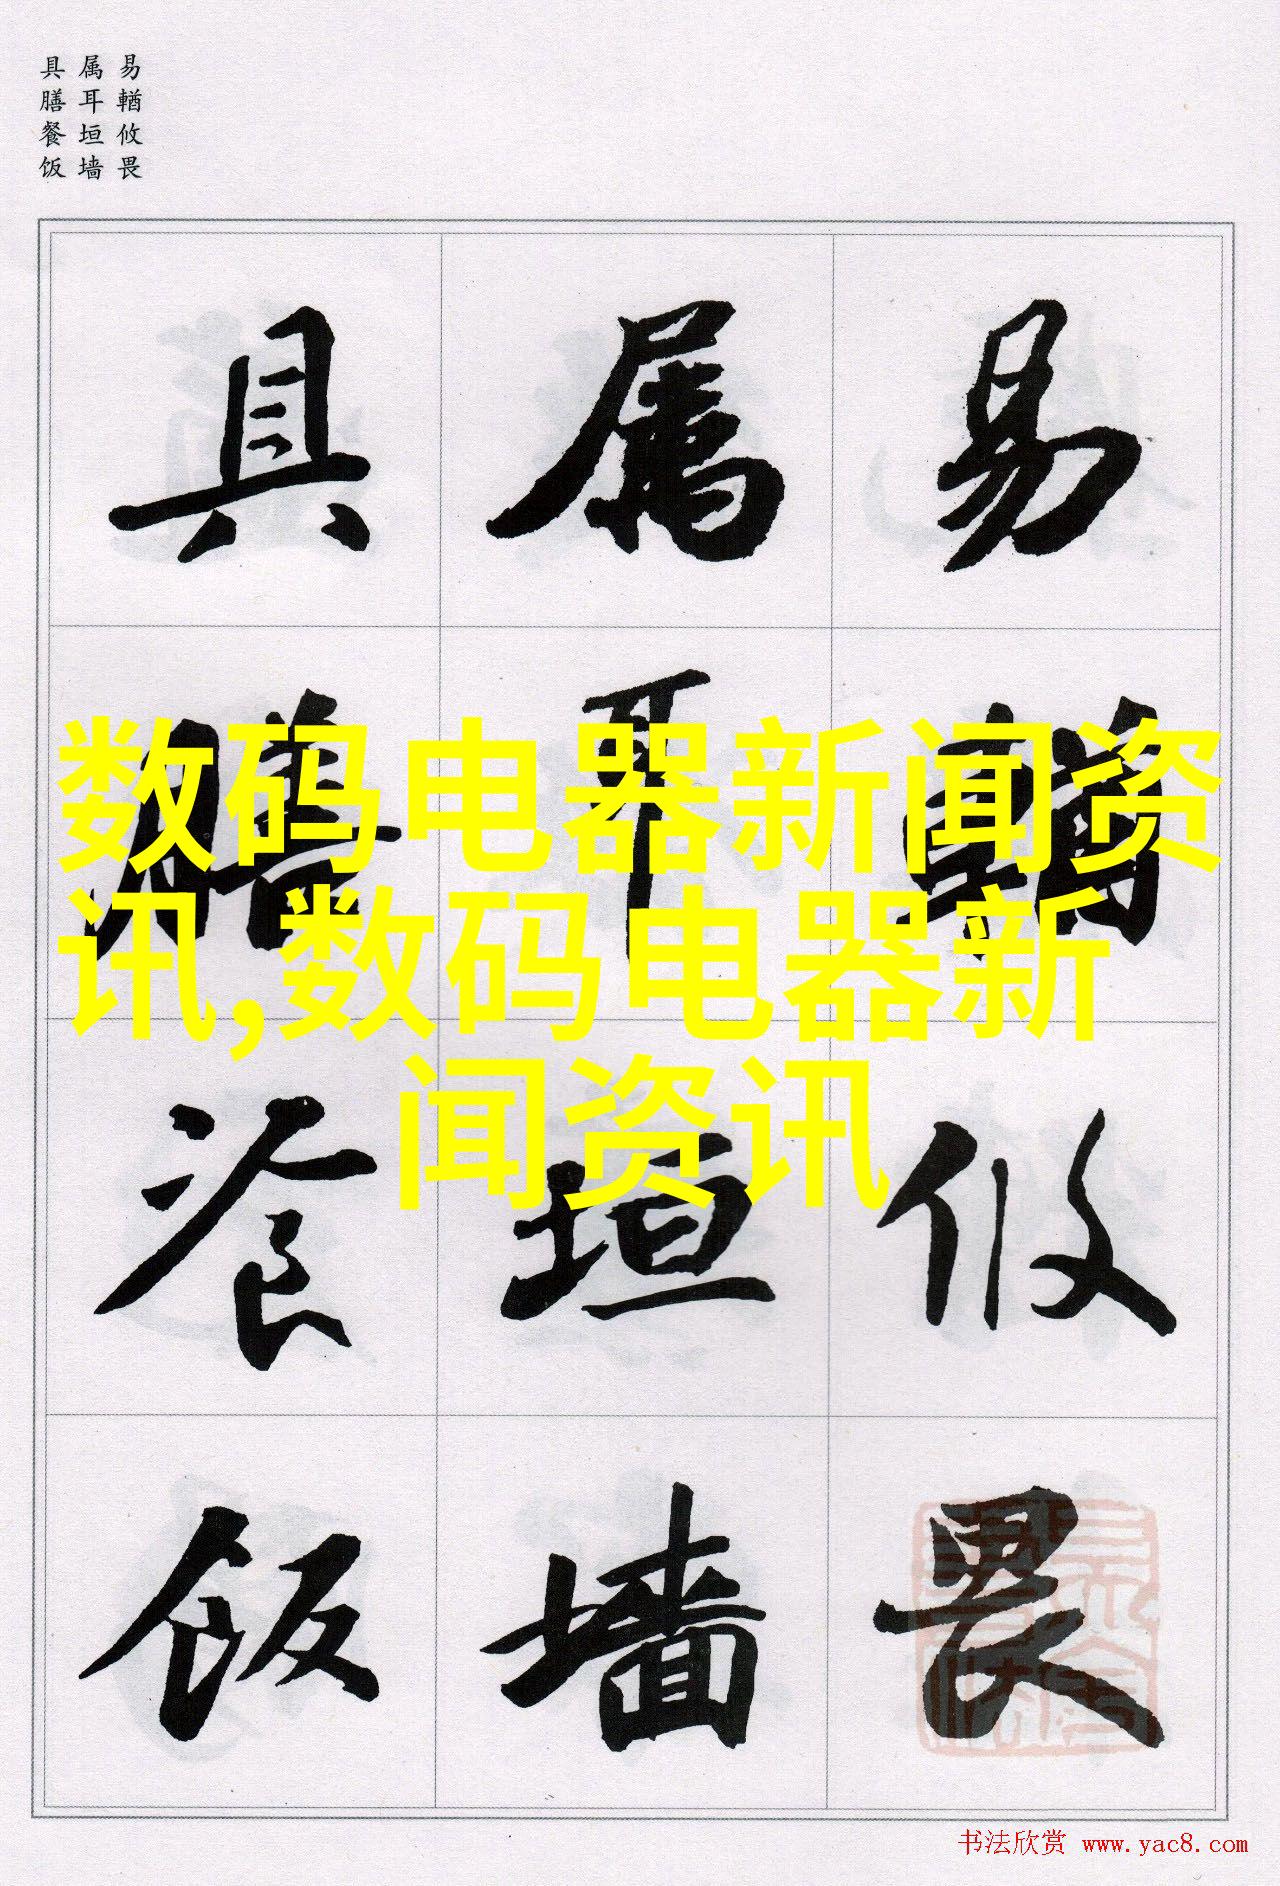 易輶攸畏
属耳垣墙
具膳餐饭
易輶攸畏
属耳垣墙
具膳餐饭
数码电器新闻资
讯,数码电器新
闻资讯
书法欣赏 www.yac8.com